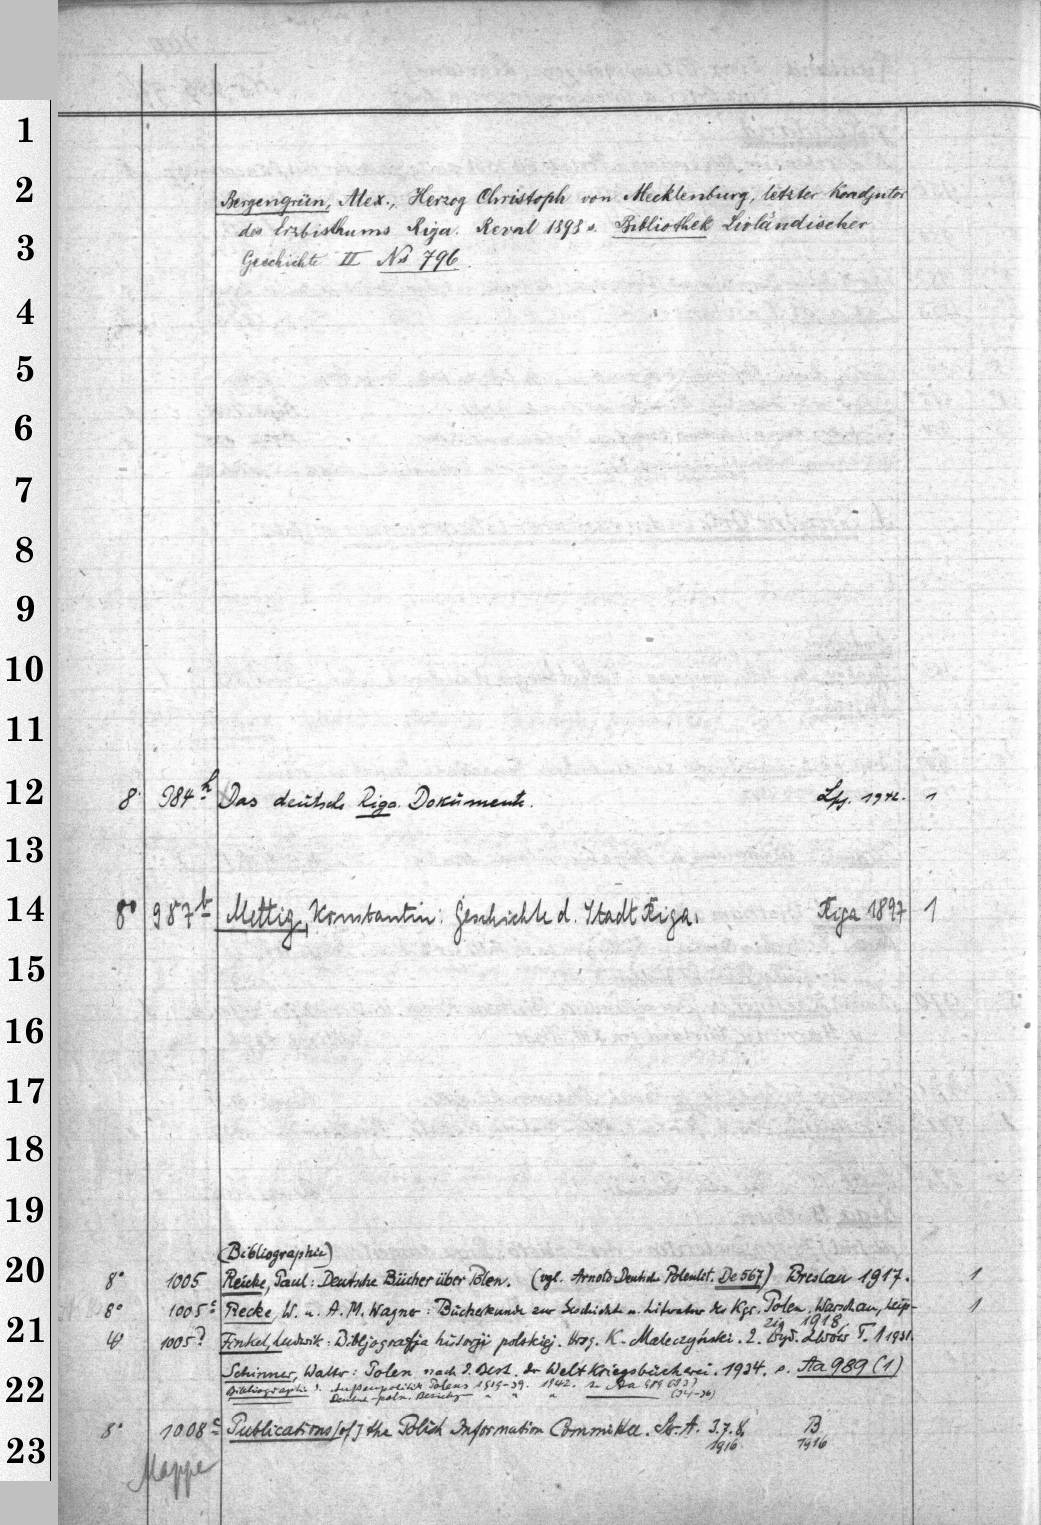 1
2
Bergengrün, Alex., Herzog Christoph von Mecklenburg, letzter Koadjutor
des Erzbisthums Riga. Reval 1898 s. Bibliothek Livländischer
3
Geschichte II No 796.
4
5
6
7
8
9
10
11
12 8° 984 h Das deutsche Riga. Dokumente. Lpz. 1942. 1
13
14 8° 987 b Mettig, Konstantin: Geschichte d. Stadt Riga. Riga 1897 1
15
16
17
18
19
(Bibliographie)
20 8° 1005 Recke, Paul: Deutsche Bücher über Polen. (vgl. Arnold: Deutsche Polenlit. De 567) Breslau 1917. 1
8° 1005 Recke, W. u. A. M. Wagner: Bücherkunde zur Geschichte u. Literatur des Kgr. Polen. Warschau, Leip-
zig 1918 1
21 4° 1005 Finkel, Ludwik: Bibljografja historji polskiej. K. Maleczyński. 2. Wyd. Lwów T. 1 1931.
22 Schinner, Walter: Polen nach d. Best. der Weltkriegsbücherei. 1934. s. Aa 989 (1)
Bibliographie z. Aussenpolitik Polens 1919-39. 1942. s. Aa 989
Deutsch-poln.
8° 1008 c Publications [of] the Polish Information Committee. 3.7.8. B
1916 1916
23
Mappe